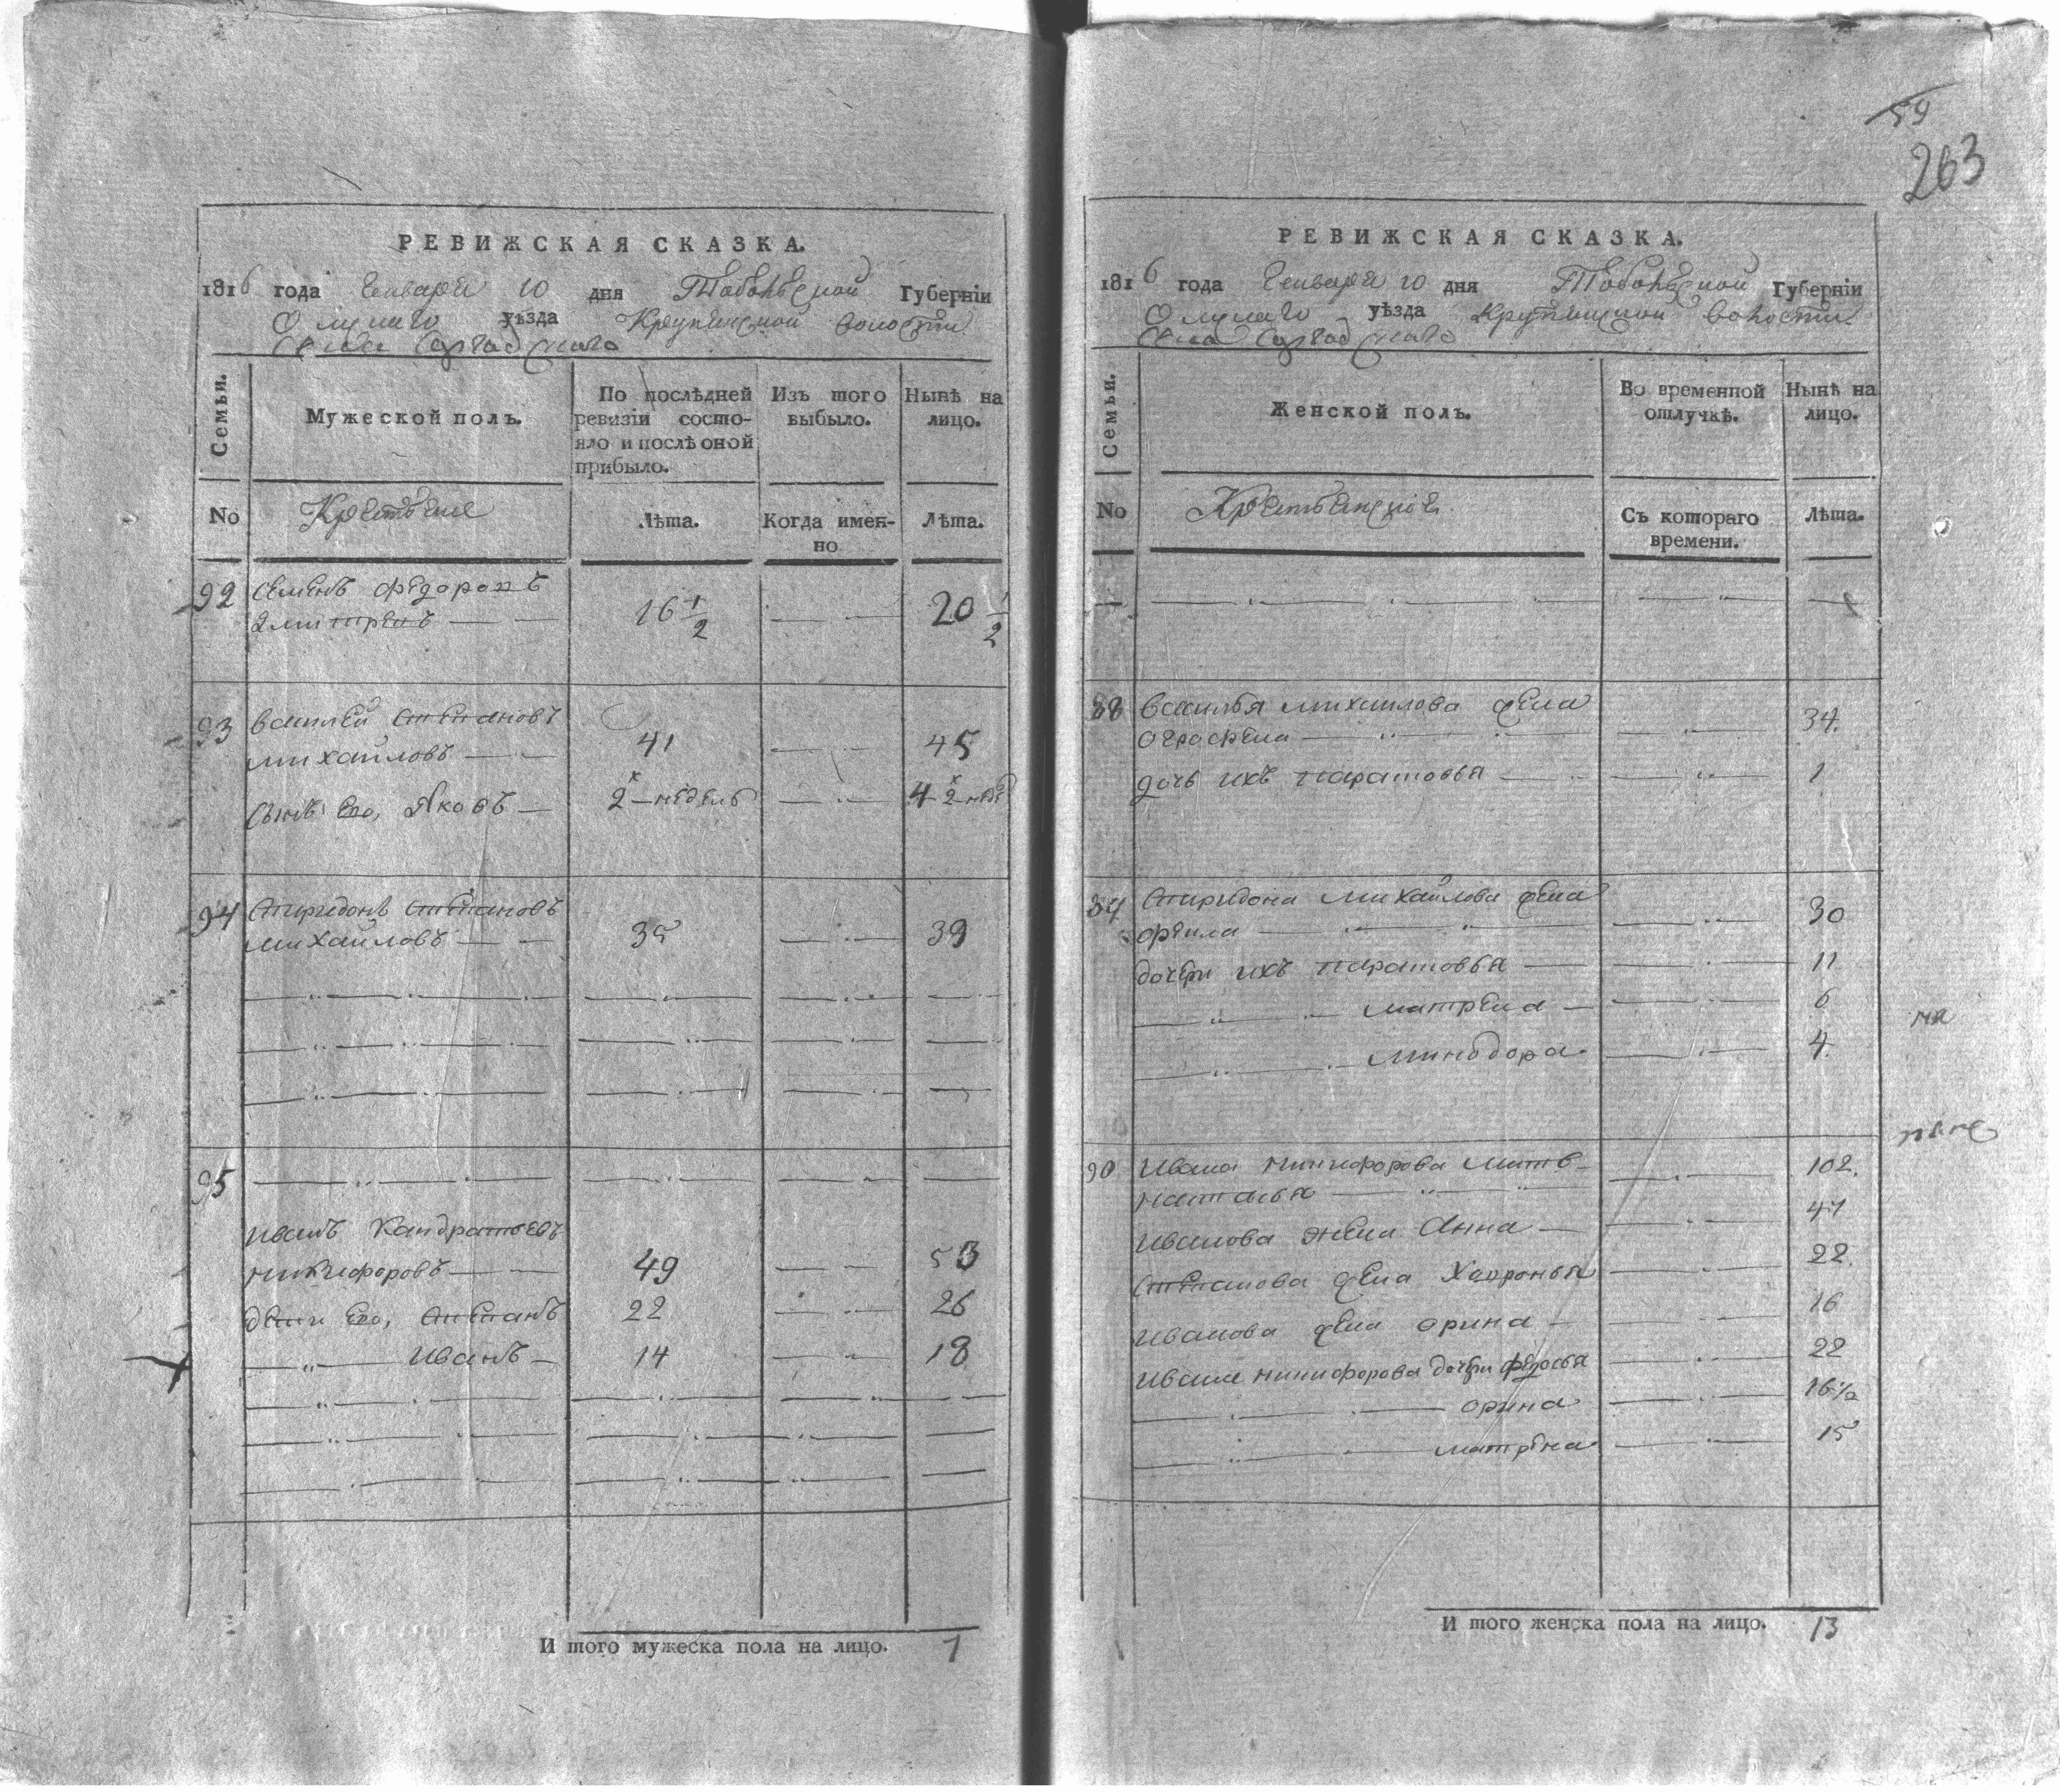 РЕВИЖСКАЯ СКАЗКА.
1816 года Генваря 10 дня Тобольской Губерніи
Омскаго уѣзда Крупянской волости
Села
Семьи.
Мужеской полъ.
По послѣдней ревизіи состо-
яло и послѣ оной прибыло.
Изъ того выбыло.
Нынѣ на лицо.
No
Крестьяне
Лѣта.
Когда имен-
но
Лѣта.
92 Семенъ Федоровъ
16 1/2 20 1/2
93 Василей Степановъ
Михайловъ 41 45
Сынъ Его, Яковъ 2 недель 4 2 неде
94 Спиридонъ Степановъ
Михайловъ 35 39
95
Иванъ Кандратьевъ
Никифоровъ 49 53
дети Его, Степанъ 22 26
Иванъ 14 18
И того мужеска пола на лицо. 7
59
263
РЕВИЖСКАЯ СКАЗКА.
1816 года Генваря 10 дня Тобольской Губерніи
Омскаго уѣзда Крупянской волости
Села
Семьи.
Женской полъ.
Во временной отлучкѣ.
Нынѣ на лицо.
No
Крестьянской
Съ котораго времени.
Лѣта.
88 Василья Михаилова жена
Аграфена 34.
дочь ихъ Парасковья 1
89 Спиридона Михайлова жена
30
дочери ихъ Парасковья 11
Матрена 6
Минодора 4.
90 Ивана Никифорова мать
Наталья 102.
Иванова жена Анна 47
Степанова жена Хавронья 22.
Иванова жена Орина 16
Ивана Никифорова дочери Федосья 22
Орина 16 1/2
Матрена 15
И того женска пола на лицо. 13